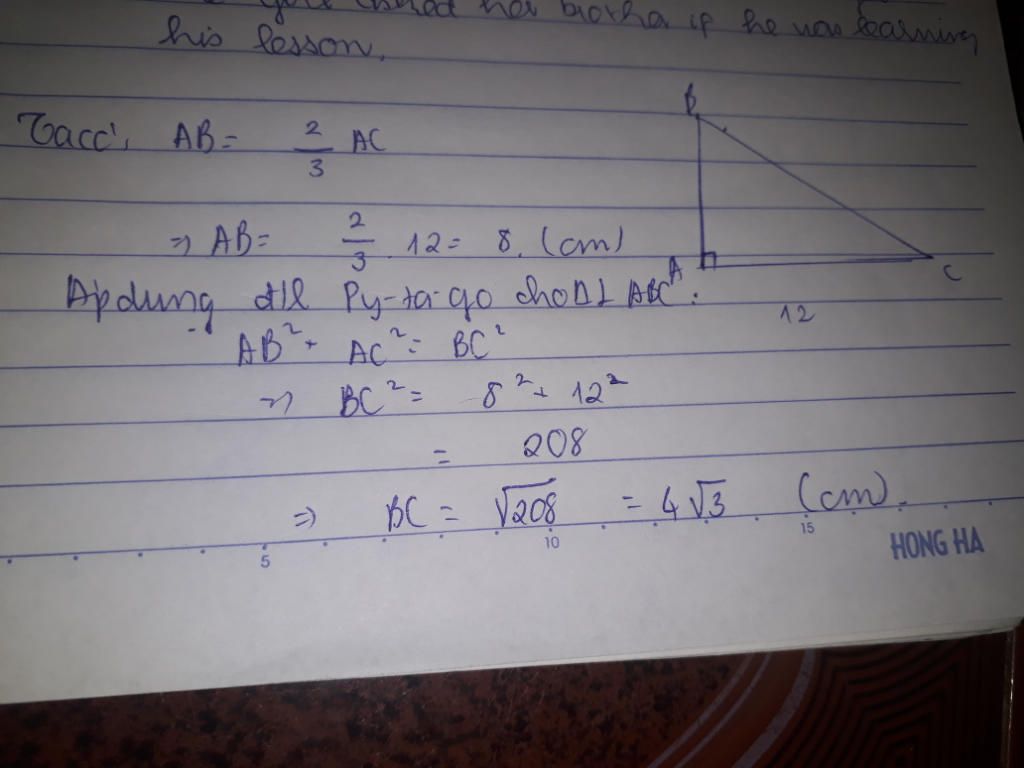 her brother if he was learning
his lesson.
B
Ta có: AB = 2/3 AC
=> AB = 2/3 . 12 = 8. (cm)
A
C
Áp dụng đ/l Py-ta-go cho Δ⊥ ABC:
12
AB² + AC² = BC²
=> BC² = 8² + 12²
= 208
=> BC = √208 = 4√3 (cm).
5 10 15
HONG HA